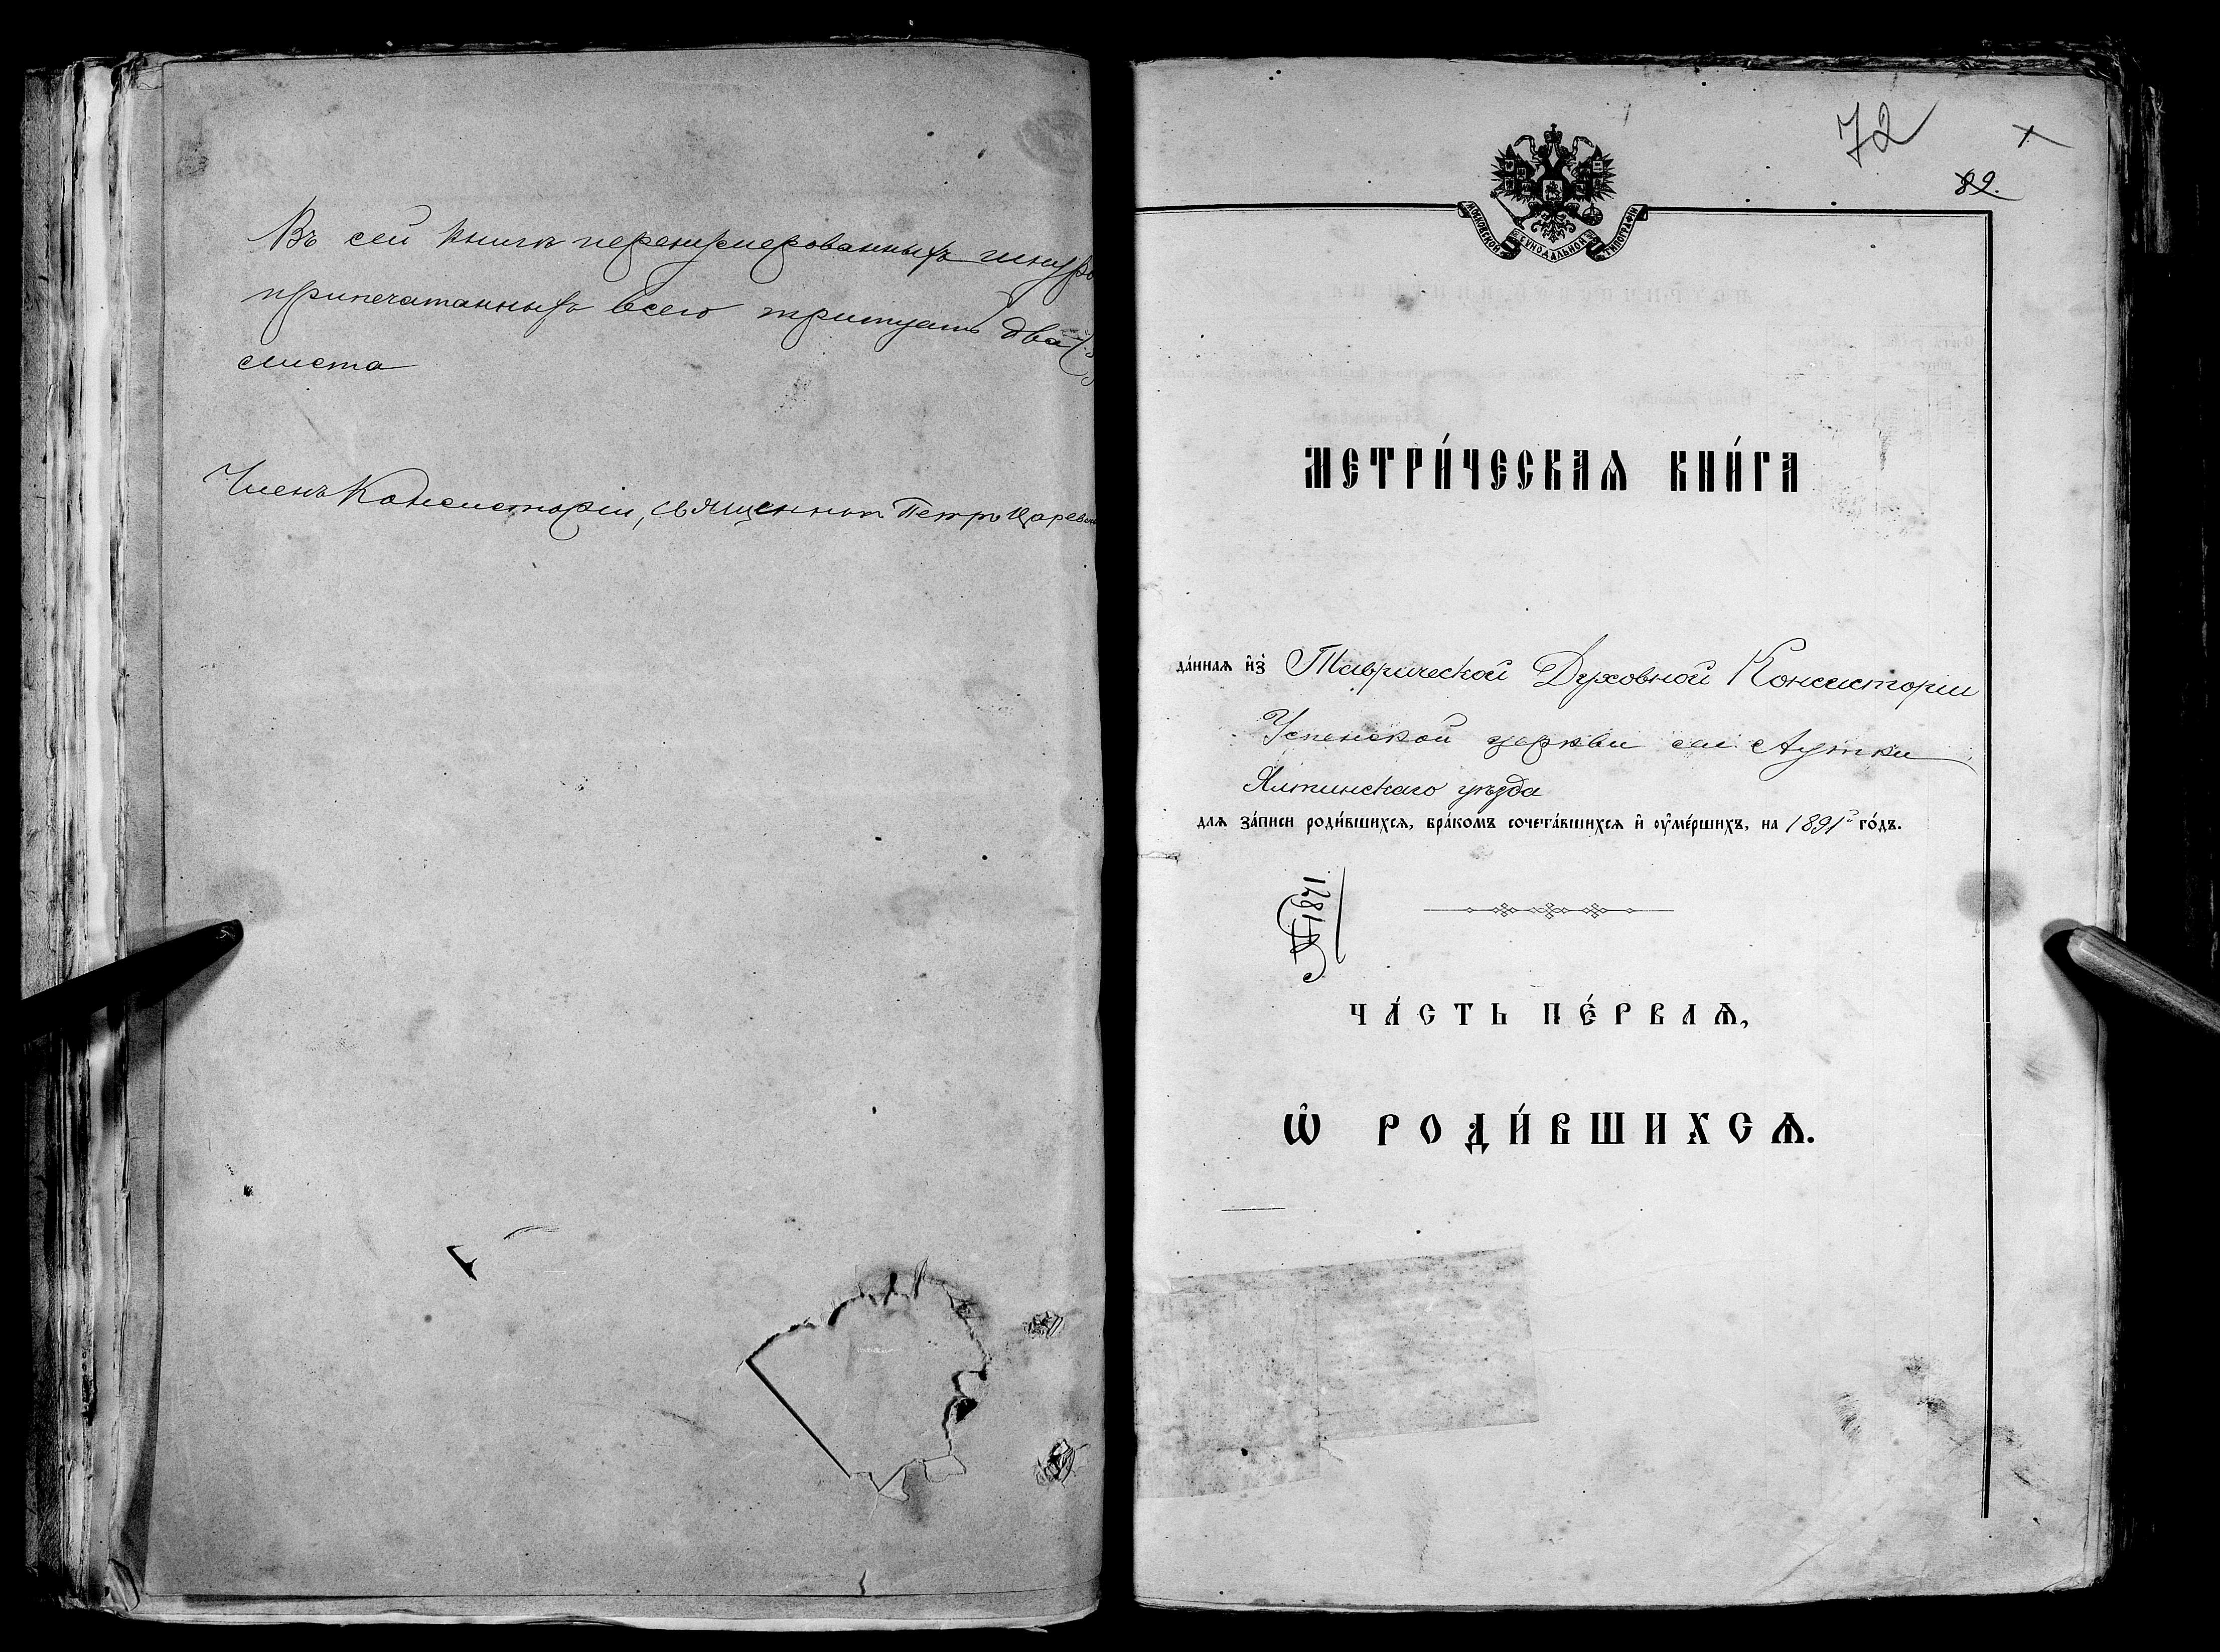 Въ сей книгѣ перенумерованныхъ шнуро
припечатанныхъ всего тритцать два
листа
Членъ Консисторіи, священникъ Петръ Царев
72
82.
МОСКОВСКОЙ СѴНОДАЛЬНОЙ ТИПОГРАФІИ
МЕТРИ́ЧЕСКАѦ КНИ́ГА
да́ннаѧ и҆з̾ Таврической Духовной Консисторіи
Успенской церкви сел. Аутки
Ялтинскаго уѣзда
длѧ за́писи роди́вшихсѧ, бра́комъ сочета́вшихсѧ и҆ ᲂу҆ме́ршихъ, на 1891й го́дъ.
ЧА́СТЬ ПЕ́РВАѦ,
Ѡ҆ РОДИ́ВШИХСѦ.